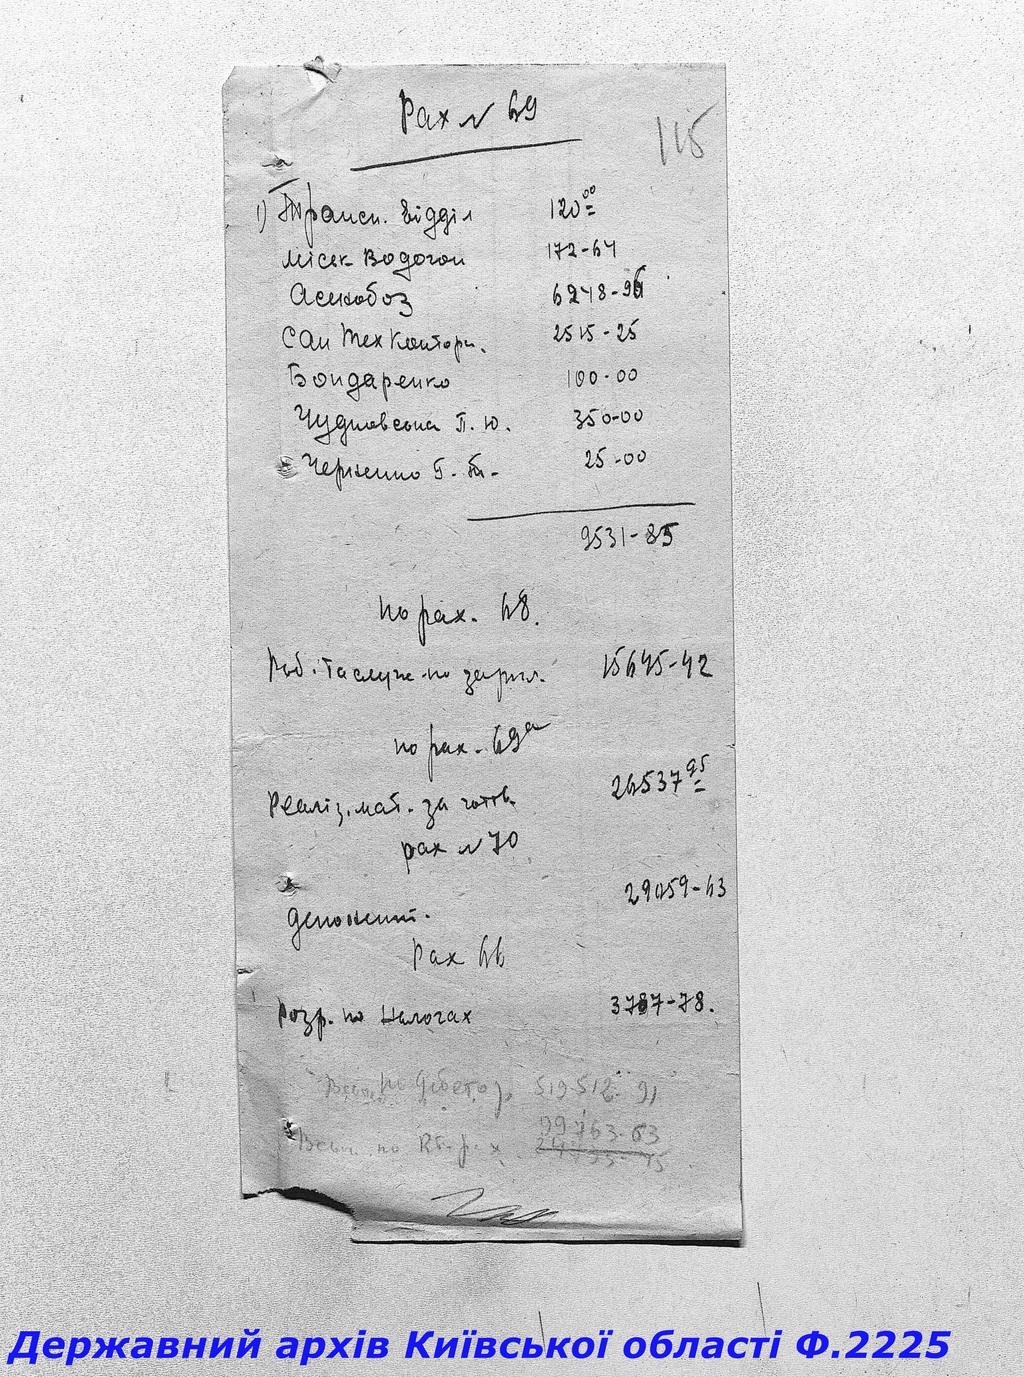 Рах № 69
115
1) Трансп. Відділ 120 00
Міськ Водогон 172-64
Асенобоз 6248-96
Сан Тех Контори. 2515-25
Бондаренко 100-00
Чудновська П. Ю. 350-00
Черненко 25-00
9531-85
по рах. 68.
Роб. та служ. по зарпл. 15645-42
по рах. 69а
Реаліз. мат. за готів. 26537 95
рах № 70
29059-63
депонент.
Рах 66
Розр. по Налогах 3787-78.
Всього по Дебетор. 519512. 91
99763-63
Всього по
Державний архів Київської області Ф.2225